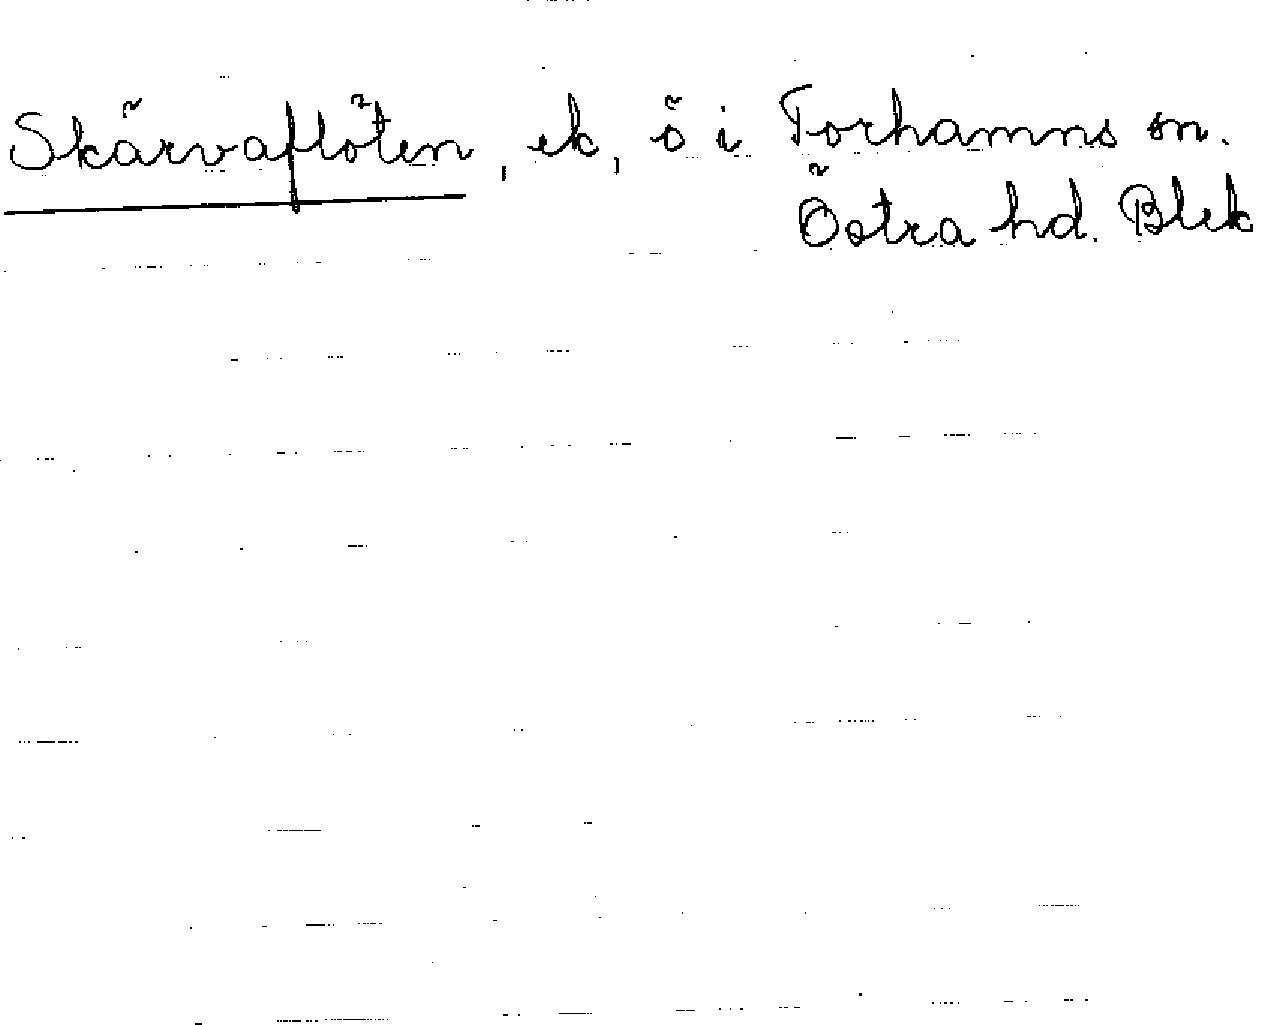 Skärvaflöten, ek, ö i Torhamns sn.
Östra hd. Blek